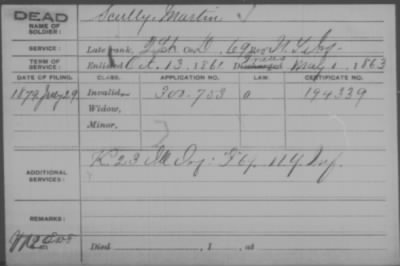 DEAD
NAME OF SOLDIER: Scully, Martin
SERVICE: Late rank, Co. 69 N. Y. Inf.
TERM OF SERVICE: Enlisted Oct. 13, 1861 Discharged May 1, 1863
DATE OF FILING. CLASS. APPLICATION NO. LAW. CERTIFICATE NO.
1879 29 Invalid, 302.703 a 194339
Widow,
Minor,
ADDITIONAL SERVICES: K. 23 Ill Inf.
REMARKS:
Died , 1 , at